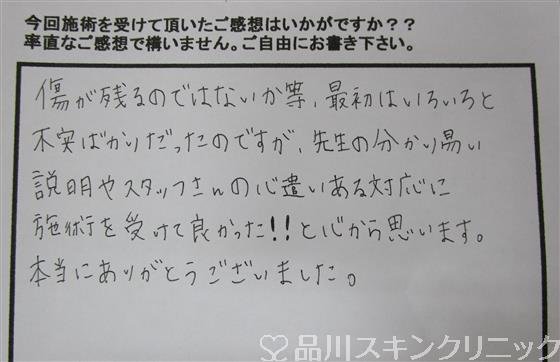 今回施術を受けて頂いたご感想はいかがですか？？
率直なご感想で構いません。ご自由にお書き下さい。
傷が残るのではないか等、最初はいろいろと
不実ばかりだったのですが、先生の分かり易い
説明やスタッフさんの心遣いある対応に
施術を受けて良かった!!と心から思います。
本当にありがとうございました。
☆品川スキンクリニック